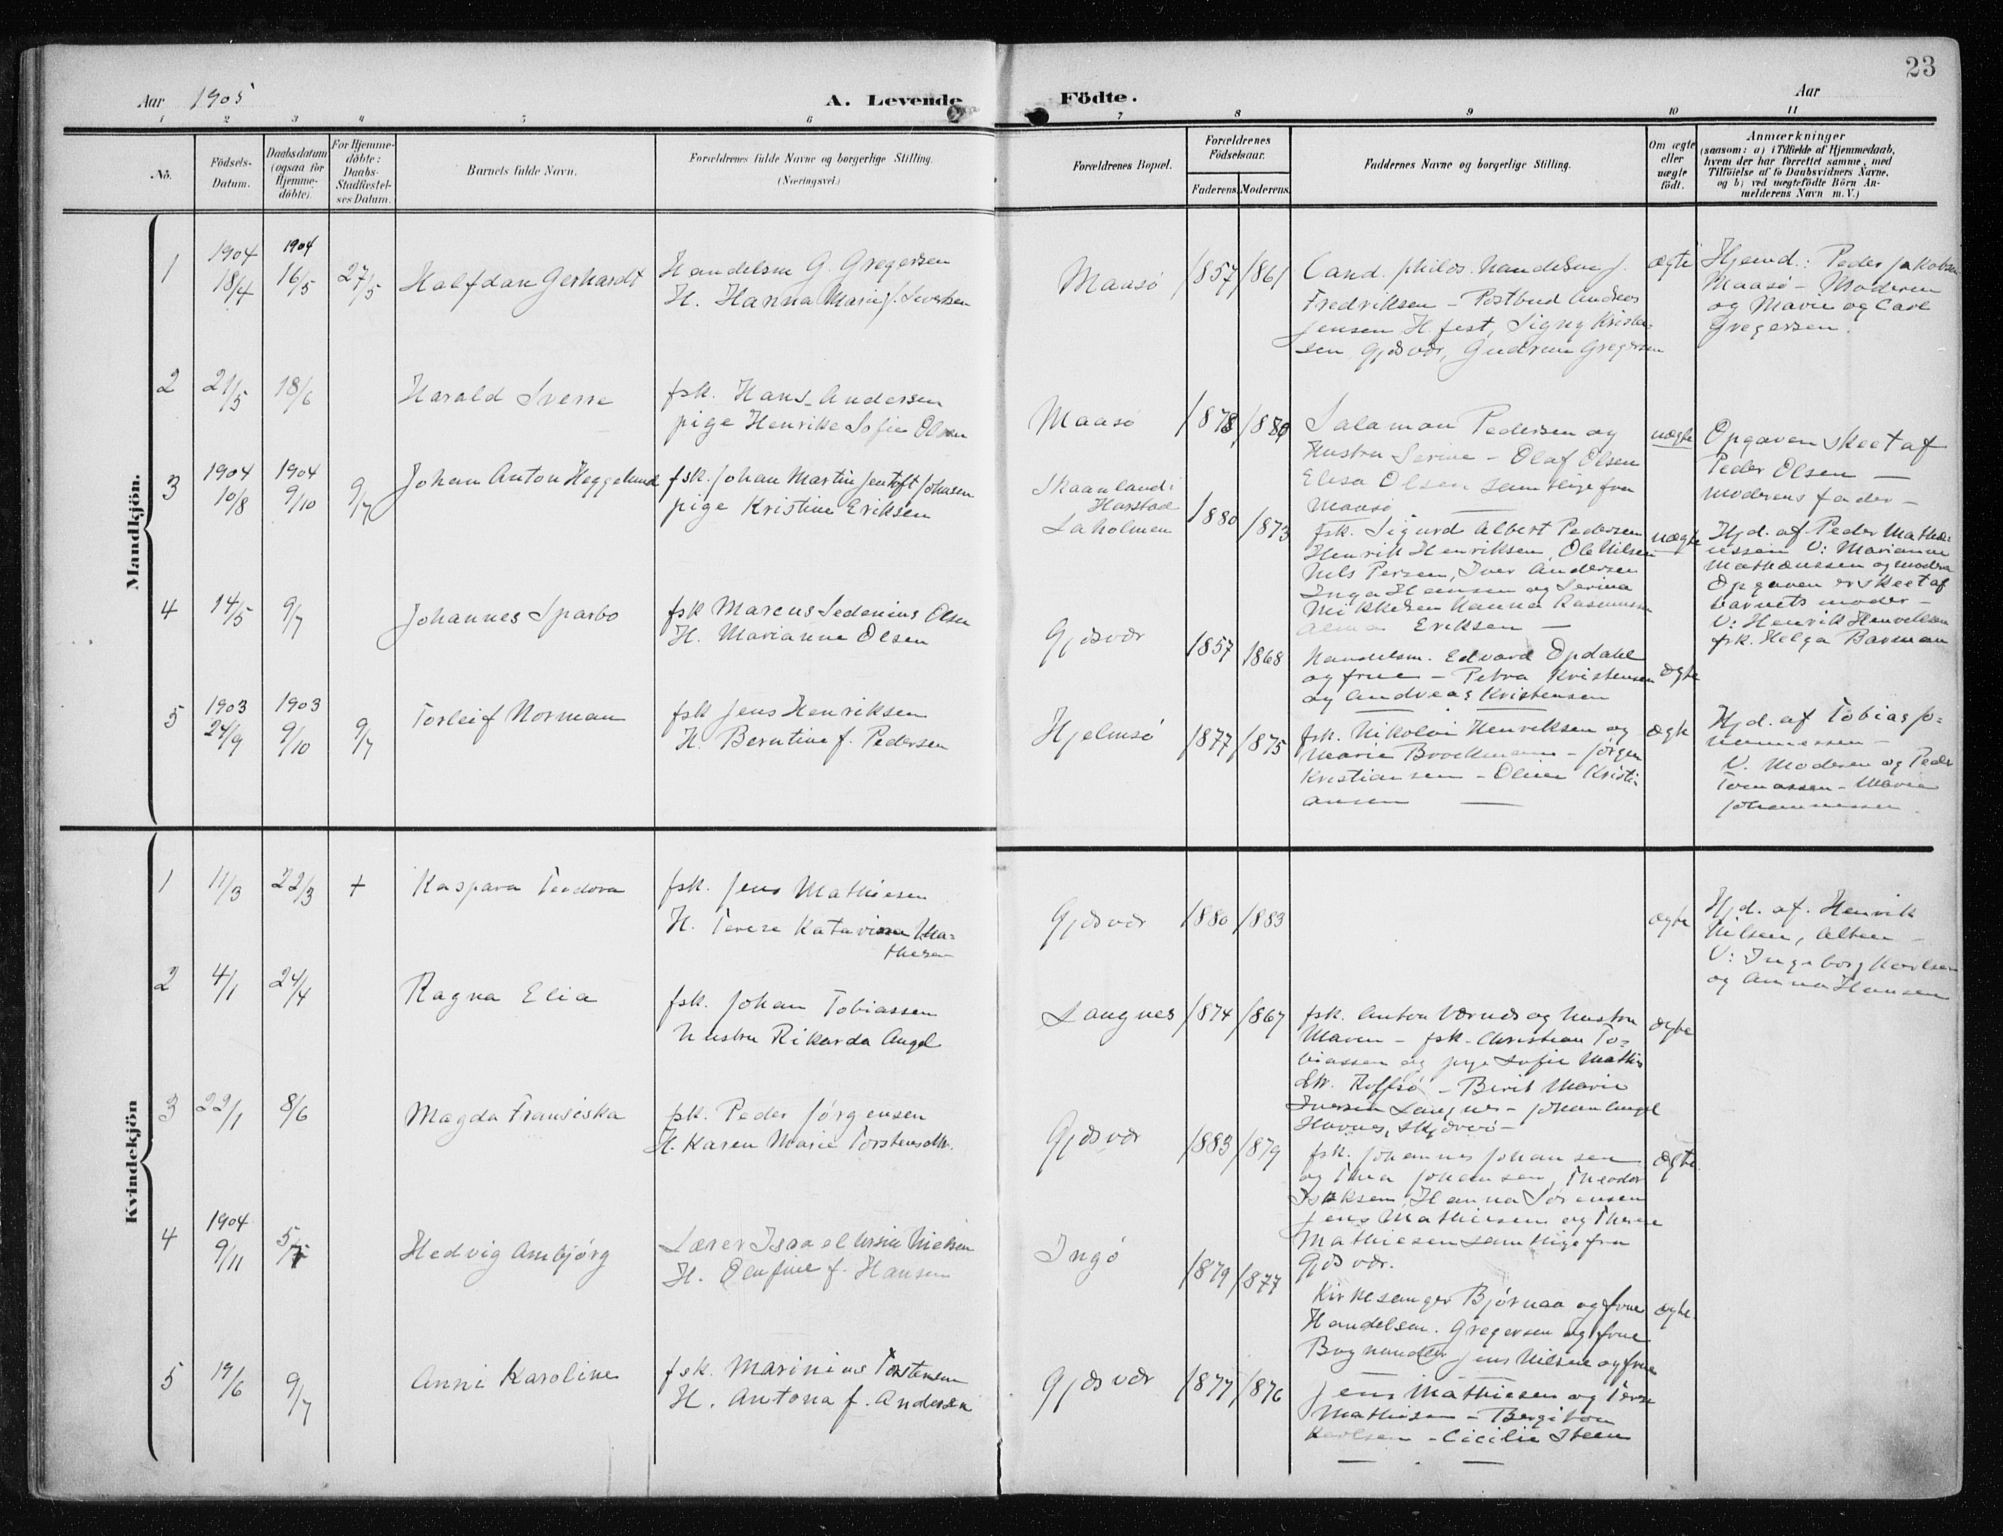 23
Aar 1905
A. Levende Födte.
Aar
1 2 3 4 5 6 7 8 9 10 11
No.
Födsels-Datum.
Daabsdatum (ogsaa for Hjemmedöbte).
For Hjemmedöbte: Daabs-Stadfæstelses Datum.
Barnets fulde Navn.
Forældrenes fulde Navne og borgerlige Stilling.
(Næringsvei.)
Forældrenes Bopæl.
Forældrenes Födselsaar.
Faderens. Moderens.
Faddernes Navne og borgerlige Stilling.
Om ægte eller uægte födt.
Anmærkninger
(saasom: a) i Tilfælde af Hjemmedaab,
hvem der har forrettet samme, med
Tilföielse af to Daabsvidners Navne,
og b) ved uægtefödte Börn Anmelderens Navn m. V.)
Mandkjön.
1
1904
18/4
1904
16/5
27/5
Halfdan Gerhardt
Handelsm G. Gregersen
H. Hanna Marie f. Iversen
Maasø
1857 1861
Cand. philos. Handelsm J.
Fredriksen - Postbud Andreas
Jensen H.fest, Signy Kristen-
sen Gjæsvær, Gudrun Gregersen
ægte
Hjemd: Peder Jakobsen
Maasø - Moderen
og Marie og Carl
Gregersen.
2
21/5
18/6
Harald Sverre
fsk. Hans Andersen
pige Henrikke Sofie Olsen
Maasø
1878 1880
Salamon Pedersen og
Hustru Serine - Olaf Olsen
Elisa Olsen samtlige fra
Maasø
uægte
Opgaven skeet af
Peder Olsen -
moderens fader -
3
1904
10/8
1904
9/10
9/7
Johan Anton Heggelund
fsk. Johan Martin Jentoft Johnsen
pige Kristine Eriksen
Skaanland i
Harstad
Laholmen
1880 1873
fsk. Sigurd Albert Pedersen
Henrik Henriksen, Ole Nilsen
Nils Persen, Iver Andersen
Inga Hansen og Serina
Mikkelsen Hanna Rasmussen
Alma Eriksen -
uægte
Hjd. af Peder Mathæ-
ussen V: Marianne
Mathæussen og moderen
Opgaven er skeet af
barnets moder -
V: Henrik Henriksen
fsk. Helga Barman
4
14/5
9/7
Johannes Sparbo
fsk Marcus Sedenius Olsen
H. Marianne Olsen
Gjæsvær
1857 1868
Handelsm. Edvard Opdahl
og frue - Petra Kristensen
og Andreas Kristensen
ægte
5
1903
24/9
1903
9/10
9/7
Torleif Norman
fsk Jens Henriksen
H. Berntine f. Pedersen
Hjelmsø
1877 1875
fsk. Nikolai Henriksen og
Marie Brockmann - Jørgen
Kristiansen - Oline Kristi-
ansen
ægte
Hjd. af Tobias Jo-
hannessen -
V. Moderen og Peder
Tomassen - Marie
Johannessen
Kvindekjön
1
11/3
22/3
+
Kaspara Teodora
fsk. Jens Mathiesen
H. Terese Katarina Ma-
thisen
Gjæsvær
1880 1883
ægte
Hjd. af. Henrik
Nilsen, Alten -
V: Ingeborg Karlsen
og Anna Hansen
2
4/1
24/4
Ragna Elia
fsk. Johan Tobiassen
Hustru Rikarda Angel
Langnes
1874 1867
fsk. Anton Værnes og Hustru
Maren - fsk. Christian To-
biassen og pige Sofie Mathis
dtr. Rolfsø - Berit Marie
Iversen Langnes - Johan Angel
Havnes, Skjærvø -
ægte
3
22/1
8/6
Magda Fransiska
fsk. Peder Jørgensen
H. Karen Marie Torstensdtr.
Gjæsvær
1883 1879
fsk. Johannes Johansen
og Thea Johansen, Theodor
Isaksen, Hanna Sørensen
Jens Mathiesen og Therese
Mathiesen samtlige fra
Gjæsvær.
ægte
4
1904
9/11
5/7
Hedvig Ambjørg
Lærer Israel Nielsen
H. Olufine f. Hansen
Ingø
1879 1877
Kirkesanger Bjørnaa og frue
Handelsm. Gregersen og frue
Boghandler Jens Nilsen og frue
ægte
5
14/6
9/7
Anni Karoline
fsk. Marinius Torstensen
H. Antona f. Andersen
Gjæsvær
1877 1876
Jens Mathiesen og Terese
Mathisen - Bergiton
Karlsen - Cicilie Steen